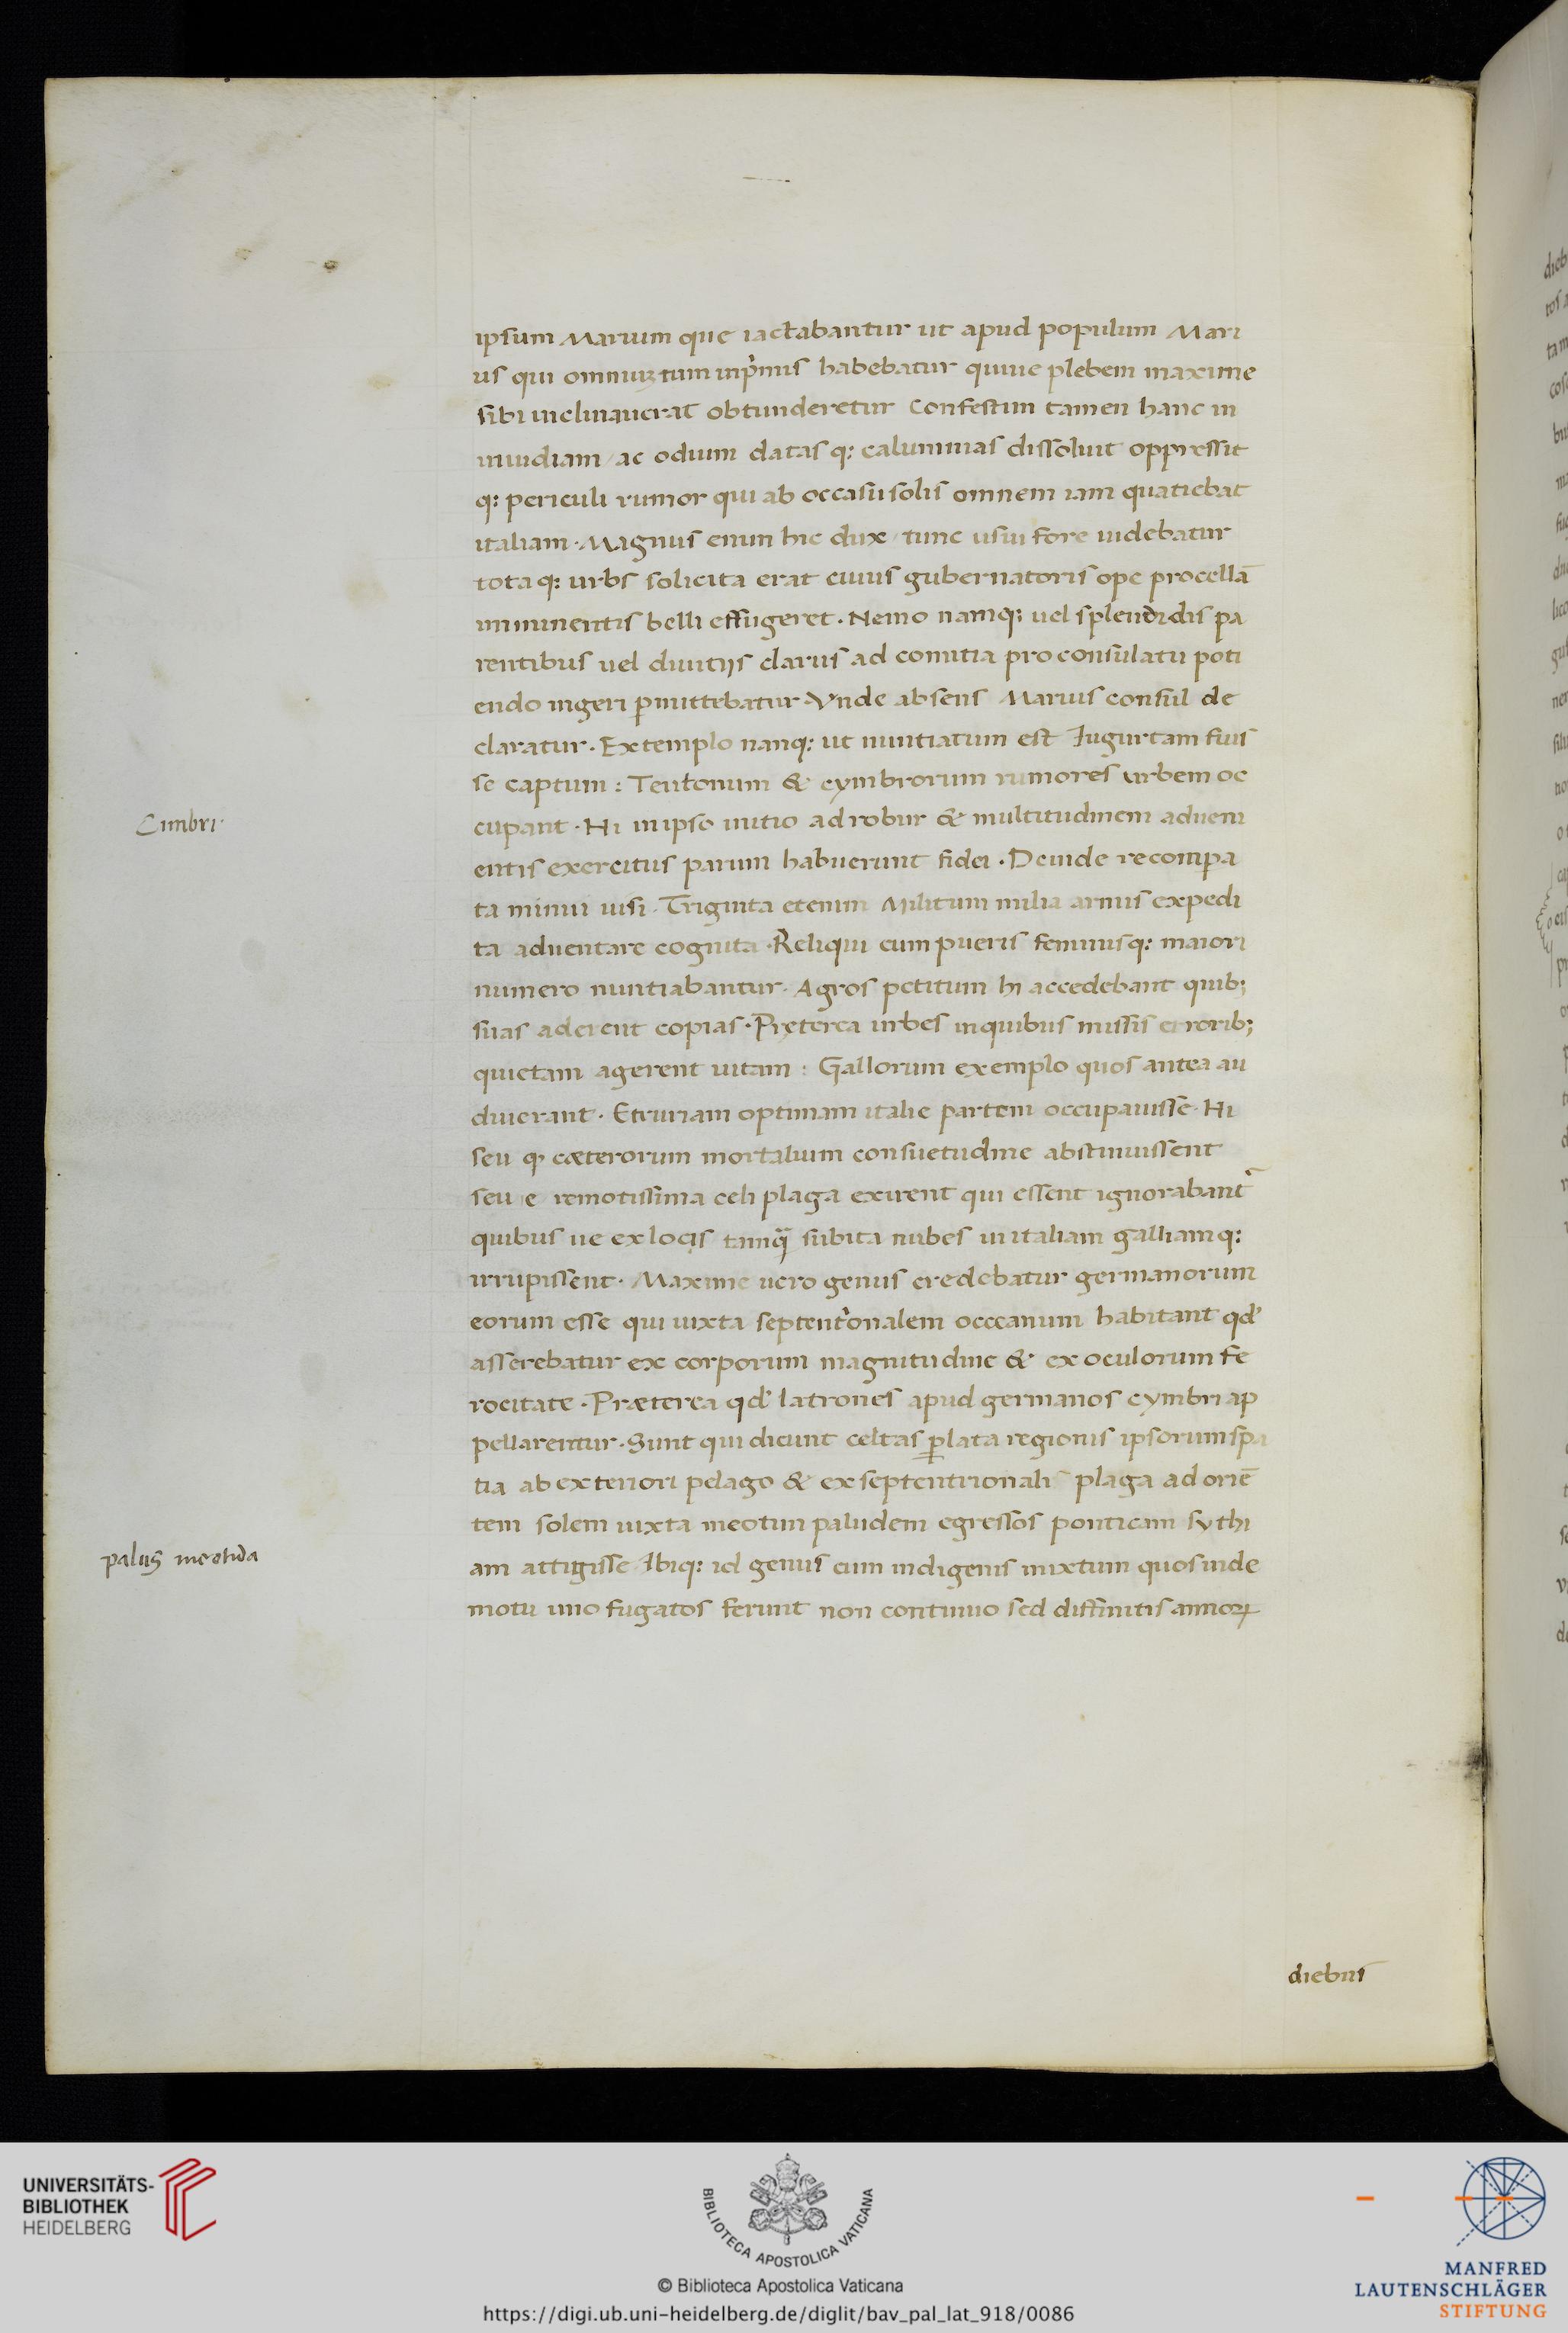 ipsum Marium que iactabantur ut apud populum Mari
us qui omniuꝫ tum inpͥmis habebatur quiue plebem maxime
sibi inclinauerat obtunderetur Confestim tamen hanc in
inuidiam ac odium datas q: calumnias dissoluit oppressit
q: periculi rumor qui ab occasu solis omnem iam quatiebat
italiam · Magnus enim hic dux tunc usui fore uidebatur
tota q: urbs solicita erat cuius gubernatoris ope procellā
imminentis belli effugeret · Nemo namq; uel splendidis pa
rentibus uel diuitijs clarus ad comitia pro consulatu poti
endo ingeri ꝑmittebatur · Vnde absens Marius consul de
claratur · Extemplo nanq: ut nuntiatum est Iugurtam fuis
se captum : Teutonum & cymbrorum rumores urbem oc
cupant · Hi in ipso initio ad robur & multitudinem adueni
entis exercitus parum habuerunt fidei · Deinde re compa
ta minui uisi · Triginta etenim Militum milia armis expedi
ta aduentare cognita · Reliqui cum pueris feminisq: maiori
numero nuntiabantur · Agros petitum hi accedebant quib;
suas aderent copias · Pręterea urbes in quibus missis errorib;
quietam agerent uitam : Gallorum exemplo quos antea au
diuerant · Etruriam optimam italie partem occupauisse · Hi
seu ꝙ cæterorum mortalium consuetudine abstinuissent
seu e remotissima celi plaga exirent qui essent ignorabant᷑
quibus ue ex locis tanqꝫ subita nubes in italiam galliamq:
irrupissent · Maxime uero genus credebatur germanorum
eorum esse qui iuxta septentͥonalem occeanum habitant qđ
asserebatur ex corporum magnitudine & ex oculorum fe
rocitate · Præterea qđ latrones apud germanos cymbri ap
pellarentur · Sunt qui dicunt celtas ꝑ lata regionis ipsorum spa
tia ab exteriori pelago & ex septentrionali plaga ad oriē
tem solem iuxta meotim paludem egressos ponticam sythi
am attigisse Ibiq: id genus cum indigenis mixtum quos inde
motu uno fugatos ferunt non continuo sed diffinitis annoꝝ
Cimbri·
palus meotida
diebus
UNIVERSITÄTS-
BIBLIOTHEK
HEIDELBERG
BIBLIOTECA APOSTOLICA VATICANA
© Biblioteca Apostolica Vaticana
https://digi.ub.uni-heidelberg.de/diglit/bav_pal_lat_918/0086
MANFRED
LAUTENSCHLÄGER
STIFTUNG